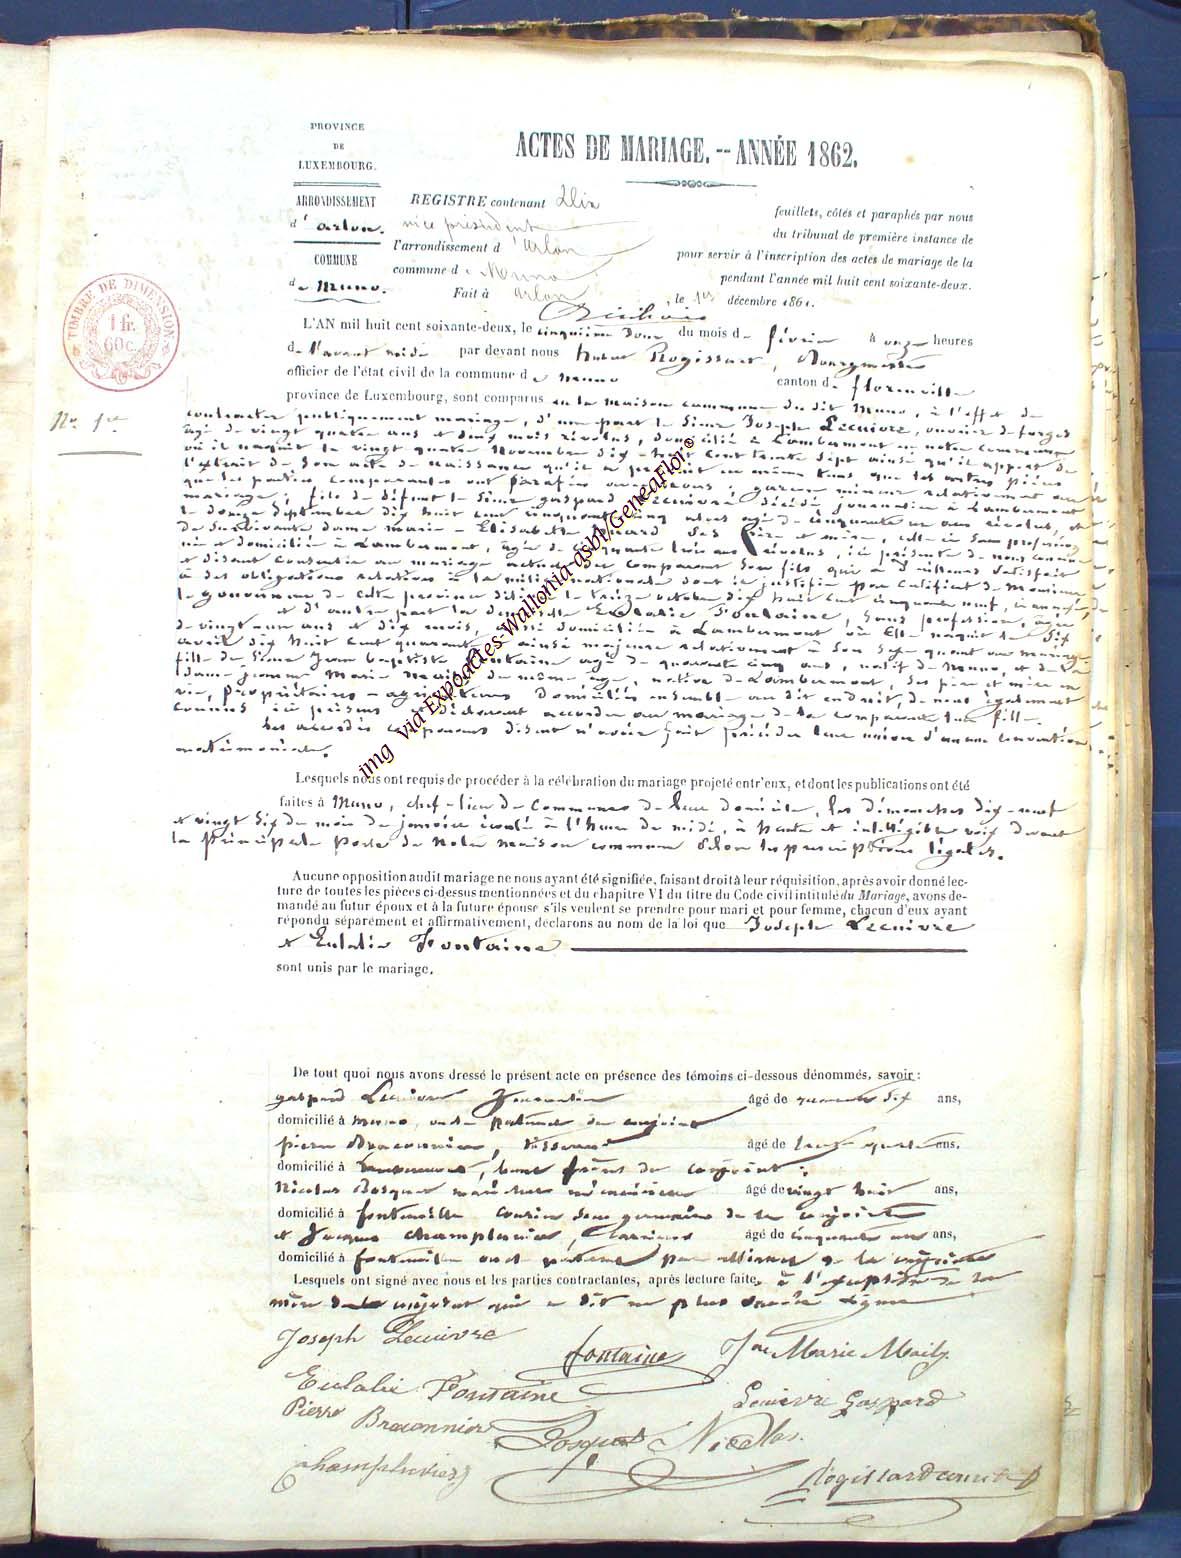 PROVINCE
DE
LUXEMBOURG.
ARRONDISSEMENT
d'arlon.
COMMUNE
de Muno.
ACTES DE MARIAGE. -- ANNÉE 1862.
REGISTRE contenant Dix feuillets, côtés et paraphés par nous
vice président du tribunal de première instance de
l'arrondissement d'Arlon pour servir à l'inscription des actes de mariage de la
commune de Muno pendant l'année mil huit cent soixante-deux.
Fait à Arlon, le 1er décembre 1861.
TIMBRE DE DIMENSION
1 fr.
60 c.
No. 1er
L'AN mil huit cent soixante-deux, le cinquième Jour du mois de février à onze heures
de l'avant midi par devant nous Rogissart, Bourgmestre
officier de l'état civil de la commune de Muno canton de florenville
province de Luxembourg, sont comparus en la maison commune du dit Muno, à l'effet de
contracter publiquement mariage, d'une part le Sieur Joseph Lecuivre, ouvrier de forges
âgé de vingt quatre ans et deux mois révolus, domicilié à Lambermont en notre commune
où il naquit le vingt quatre Novembre dix-huit cent trente sept ainsi qu'il appert de
l'extrait de son acte de naissance qu'il a produit en même tems que les autres pièces
que les parties comparantes ont parafées avec nous, garçon mineur relativement au
mariage, fils de défunt le Sieur gaspard Lecuivre décédé journalier à Lambermont
le douze Septembre dix huit cent cinquante cinq alors agé de cinquante un ans révolus, et
de Survivante dame marie - Elisabeth Ses père et mère, celle ci Sans profession
née et domiciliée à Lambermont, âgée de cinquante trois ans révolus, ici présente de nous connue
et disant consentir au mariage actuel du comparant Son fils qui a d'ailleurs Satisfait
à Ses obligations relatives à la milice nationale dont il justifie par Certificat de Monsieur
le gouverneur de cette province délivré le treize octobre dix huit cent cinquante neuf, ci annexé,
et d'autre part la demoiselle Eulalie Fontaine, Sans profession, âgée
de vingt un ans et dix mois, aussi domiciliée à Lambermont où Elle naquit le Six
avril dix huit cent quarante ainsi majeure relativement à Son Sexe quant au mariage
fille de Sieur Jean baptiste Fontaine agé de quarante cinq ans, natif de Muno, et de la
Dame jeanne Marie du même âge, native de Lambermont, Ses père et mère en
vie, propriétaires - agriculteurs Domiciliés ensemble au dit endroit, de nous également
connus ici présens et déclarant accorder au mariage de la comparante leur fille.
Les accordés comparans disent n'avoir fait précéder leur union d'aucune convention
matrimoniale.
Lesquels nous ont requis de procéder à la célébration du mariage projeté entr'eux, et dont les publications ont été
faites à Muno, chef-lieu de Communes de leur domicile, les dimanches dix-neuf
et vingt Six du mois de janvier écoulé à l'heure de midi, à haute et intelligible voix devant
la principale porte de Notre maison commune Selon les prescriptions légales.
Aucune opposition audit mariage ne nous ayant été signifiée, faisant droit à leur réquisition, après avoir donné lec-
ture de toutes les pièces ci-dessus mentionnées et du chapitre VI du titre du Code civil intitulé du Mariage, avons de-
mandé au futur époux et à la future épouse s'ils veulent se prendre pour mari et pour femme, chacun d'eux ayant
répondu séparément et affirmativement, déclarons au nom de la loi que Joseph Lecuivre
et Eulalie Fontaine
sont unis par le mariage.
De tout quoi nous avons dressé le présent acte en présence des témoins ci-dessous dénommés, savoir :
gaspard Lecuivre Journalier âgé de quarante Six ans,
domicilié à Muno, oncle paternel du conjoint
pierre Braconnier, âgé de trente quatre ans.
domicilié à Lambermont, beau frère du conjoint,
Nicolas Bosquet maréchal mécanicien âgé de vingt huit ans,
domicilié à fontenoille Cousin Sous germain de la conjointe
et Jacques champluvier, Carrier âgé de cinquante ans,
domicilié à fontenoille oncle paternel par alliance de la conjointe
Lesquels ont signé avec nous et les parties contractantes, après lecture faite, à l'exception de la
mère de conjoint qui a dit ne plus Savoir signer
Joseph Lecuivre
fontaine
Jne Marie Maily
Eulalie Fontaine
Lecuivre Gaspard
Pierre Braconnier
Bosquet Nicolas.
champluvier J
Rogissart
img via Expoactes-Wallonia-asbl/GeneaFlor©